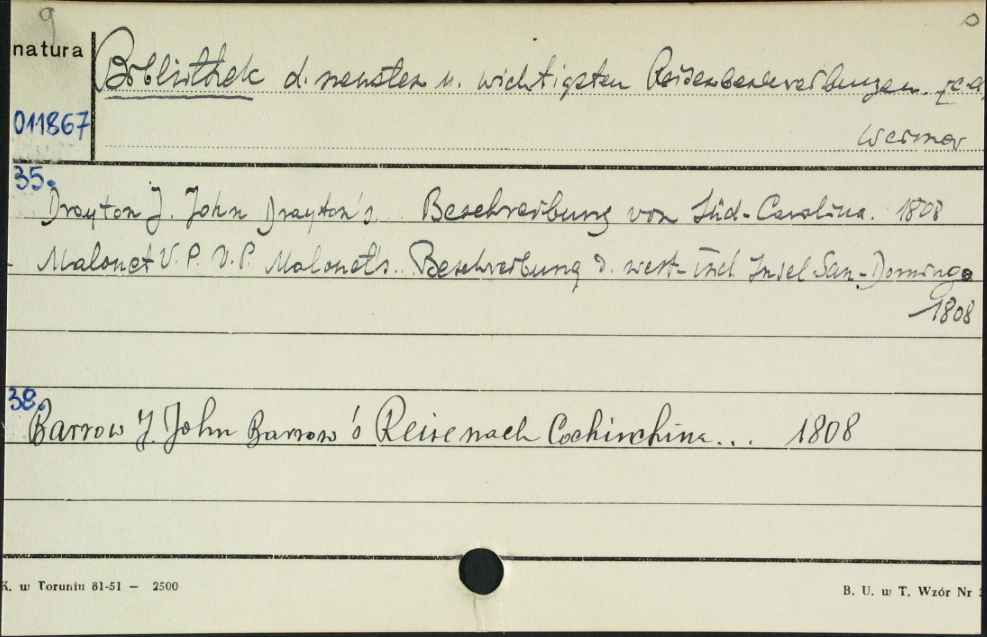 9
natura
Bibliothek d. neusten u. wichtigsten Reisenbeschreibungen.
011867
Weimar
35.
Drayton J. John Drayton's Beschreibung von Süd-Carolina. 1808
Malouet V. P. V. P. Malouet's.. Beschreibung d. west-ind Insel San-Domingo
1808
38.
Barrow J. John Barrow's Reise nach Cochinchina... 1808
K. w Toruniu 81-51 — 2500
B. U. w T. Wzór Nr